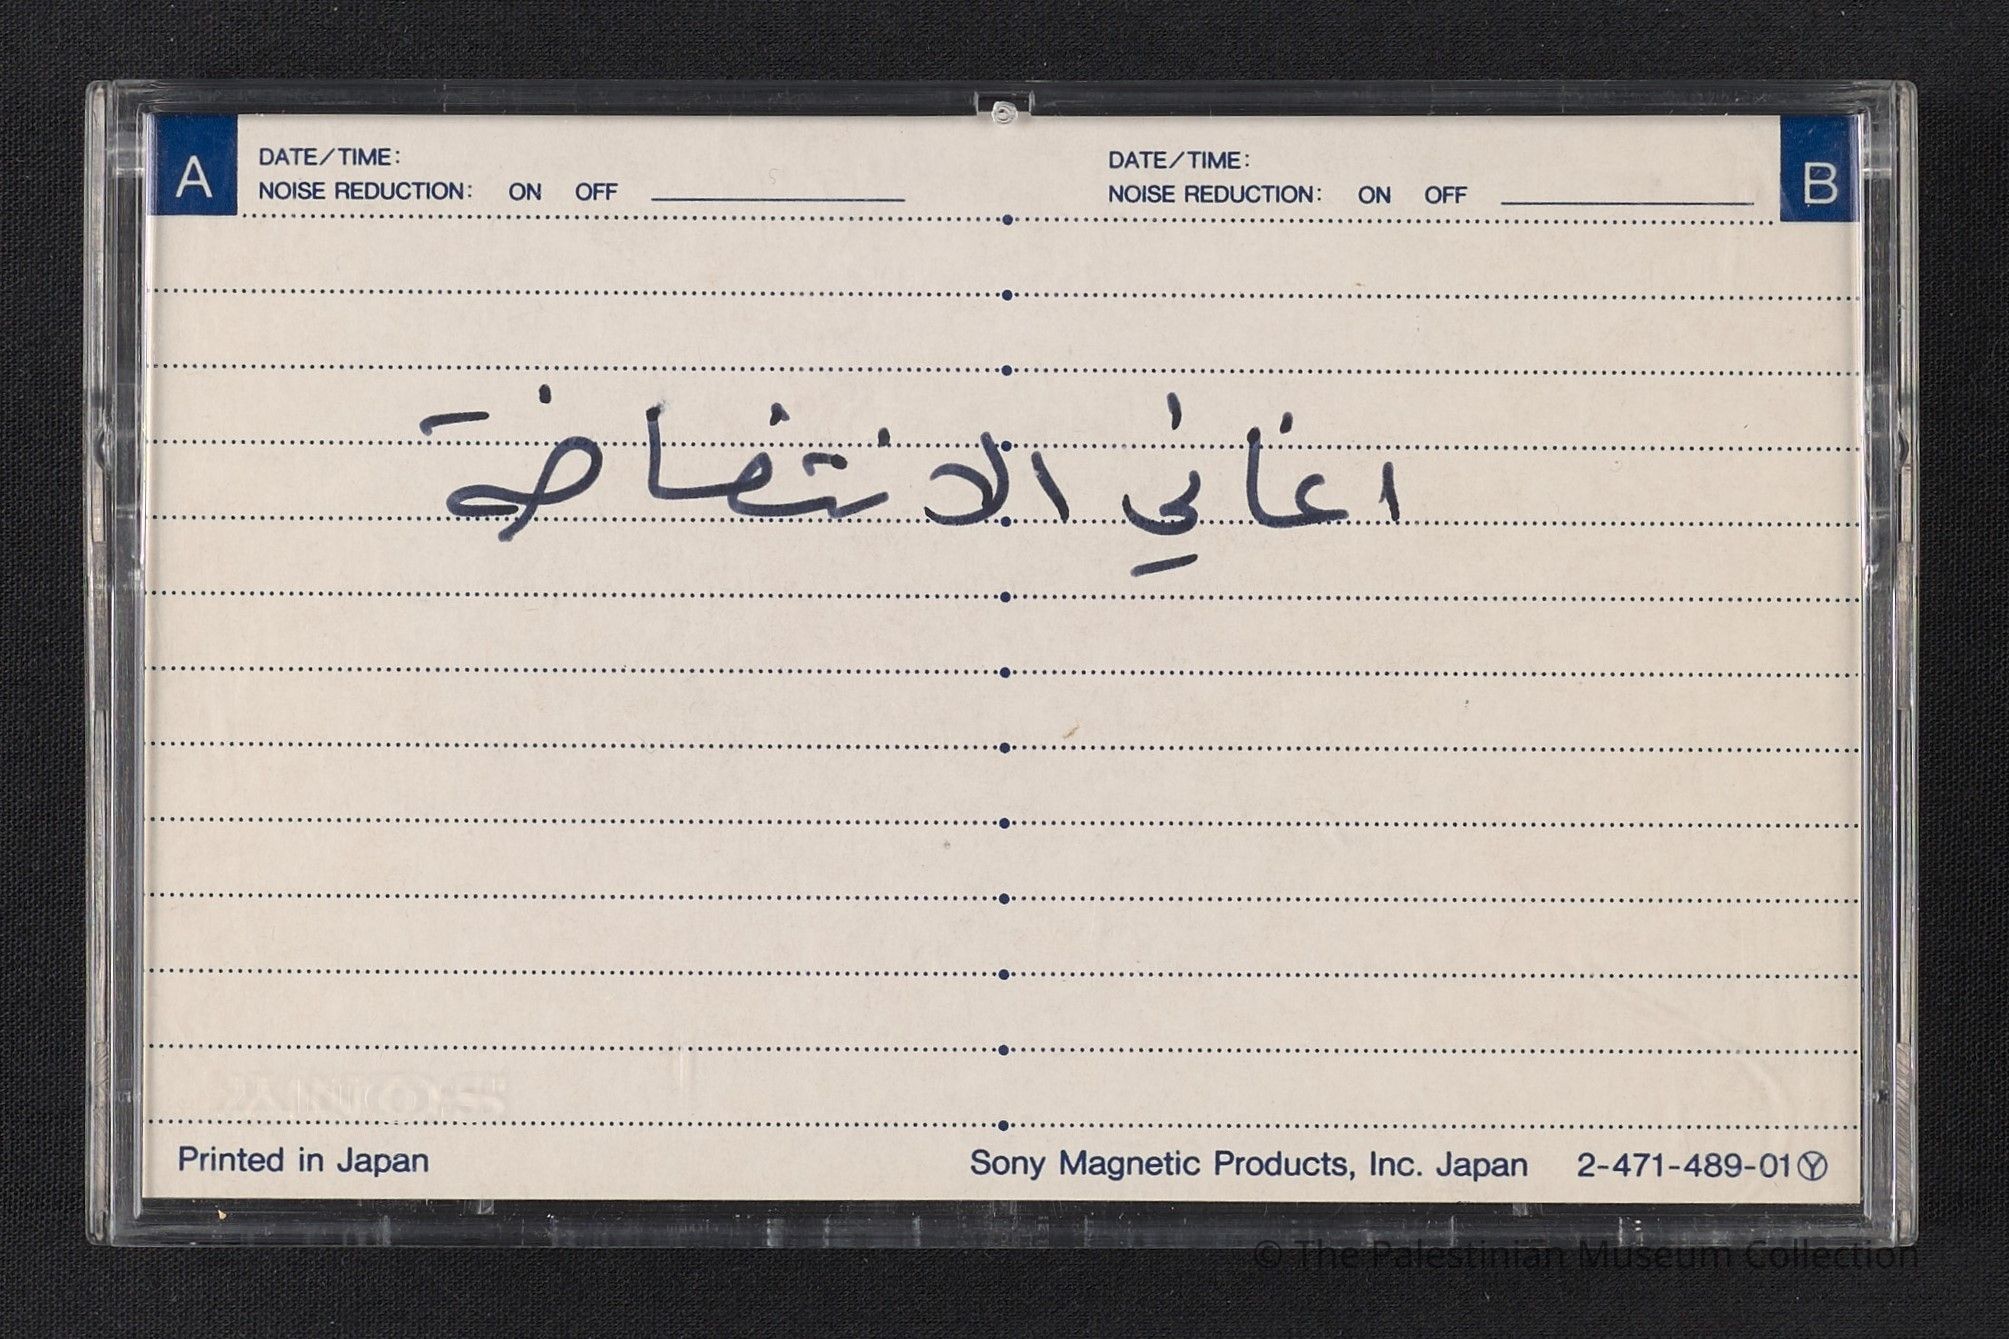 A
DATE/TIME:
NOISE REDUCTION: ON OFF
DATE/TIME:
NOISE REDUCTION: ON OFF
B
اغاني الانتفاضة
SONY
Printed in Japan
Sony Magnetic Products, Inc. Japan 2-471-489-01 Ⓨ
© The Palestinian Museum Collection